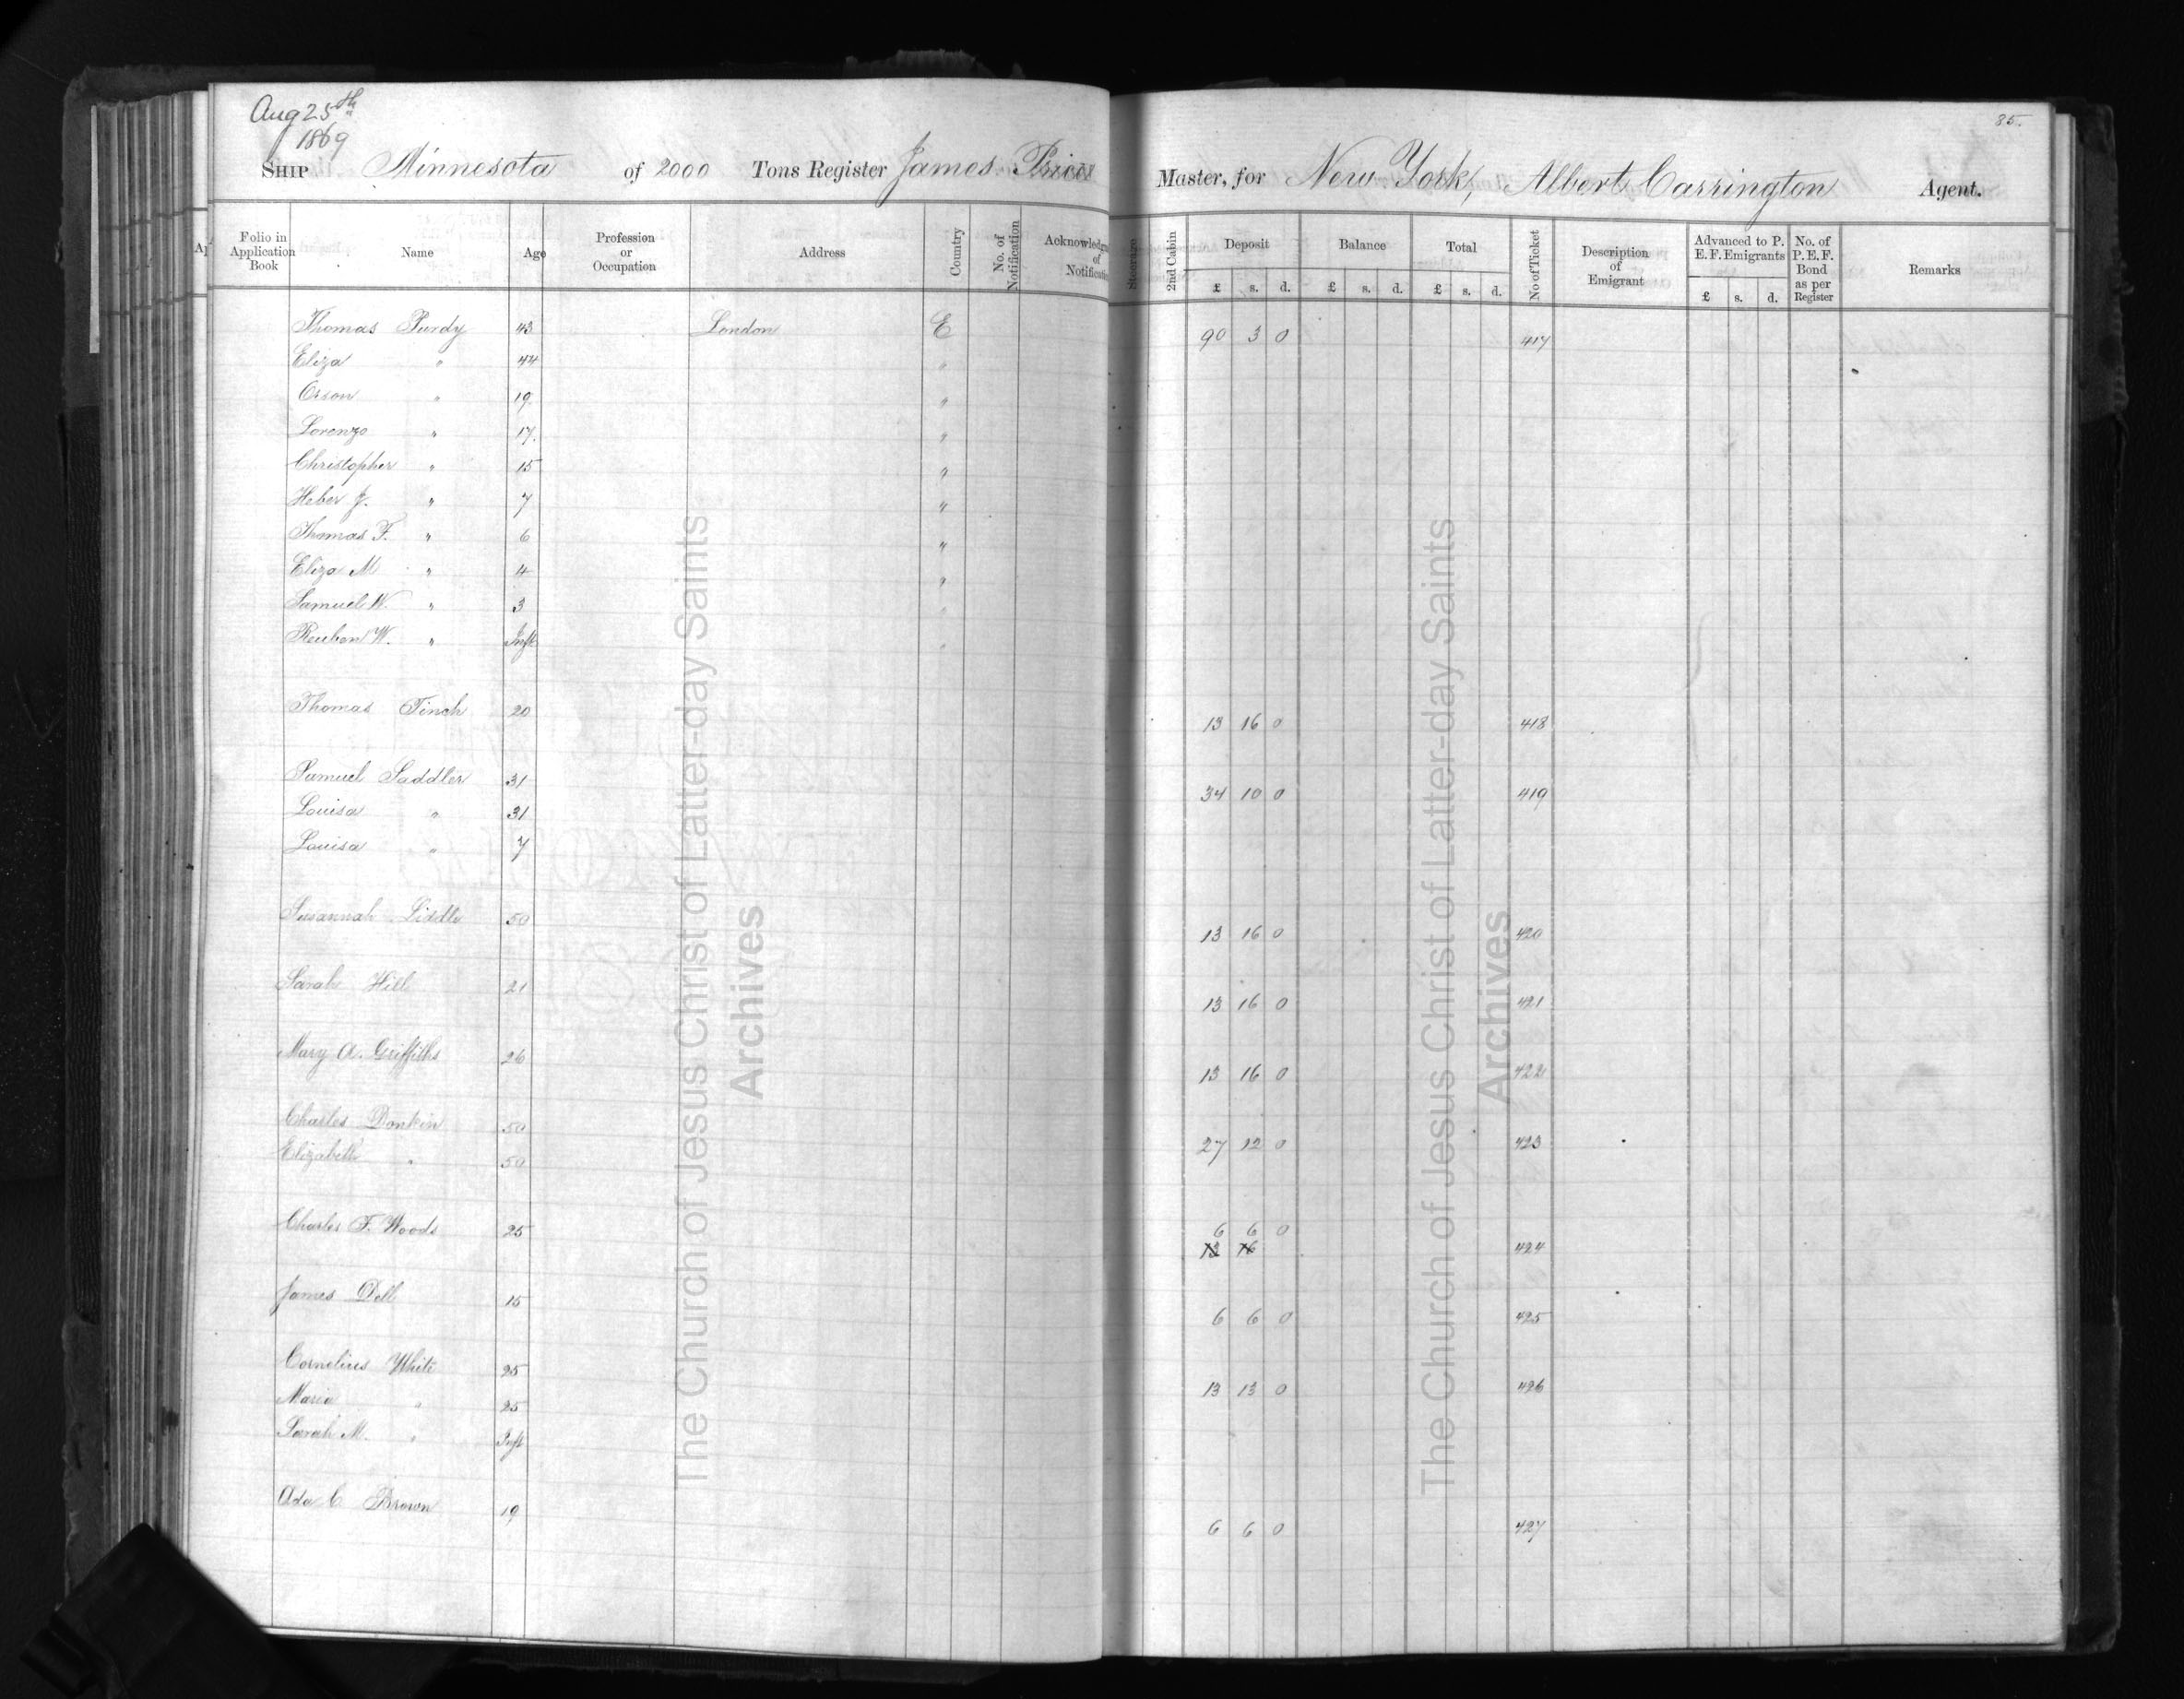 Aug 25th
1869
85.
SHIP Minnesota of 2000 Tons Register James Price Master, for New York, Albert Carrington Agent.
Folio in Application Book Name Age Profession or Occupation Address Country No. of Notification Acknowledgm of Notification Steerage 2nd Cabin Deposit £ s. d. Balance £ s. d. Total £ s. d. No of Ticket Description of Emigrant Advanced to P. E. F. Emigrants £ s. d. No. of P. E. F. Bond as per Register Remarks
Thomas Purdy 43 London E 90 3 0 417
Eliza " 44 "
Orson " 19 "
Lorenzo " 17. "
Christopher " 15 "
Heber J. " 7 "
Thomas F. " 6 "
Eliza M " 4 "
Samuel W. " 3 "
Reuben W. " Inft "
Thomas Finch 20 13 16 0 418
Samuel Saddler 31 34 10 0 419
Louisa " 31
Louisa " 7
Susannah Liddle 50 13 16 0 420
Sarah Hill 21 13 16 0 421
Mary A. Griffiths 26 13 16 0 422
Charles Donkin 50 27 12 0 423
Elizabeth " 50
Charles F. Woods 25 6 6 0
13 16 424
James Dell 15 6 6 0 425
Cornelius White 25 13 13 0 426
Maria " 25
Sarah M. " Inft
Ada C Brown 19 6 6 0 427
The Church of Jesus Christ of Latter-day Saints
Archives
The Church of Jesus Christ of Latter-day Saints
Archives